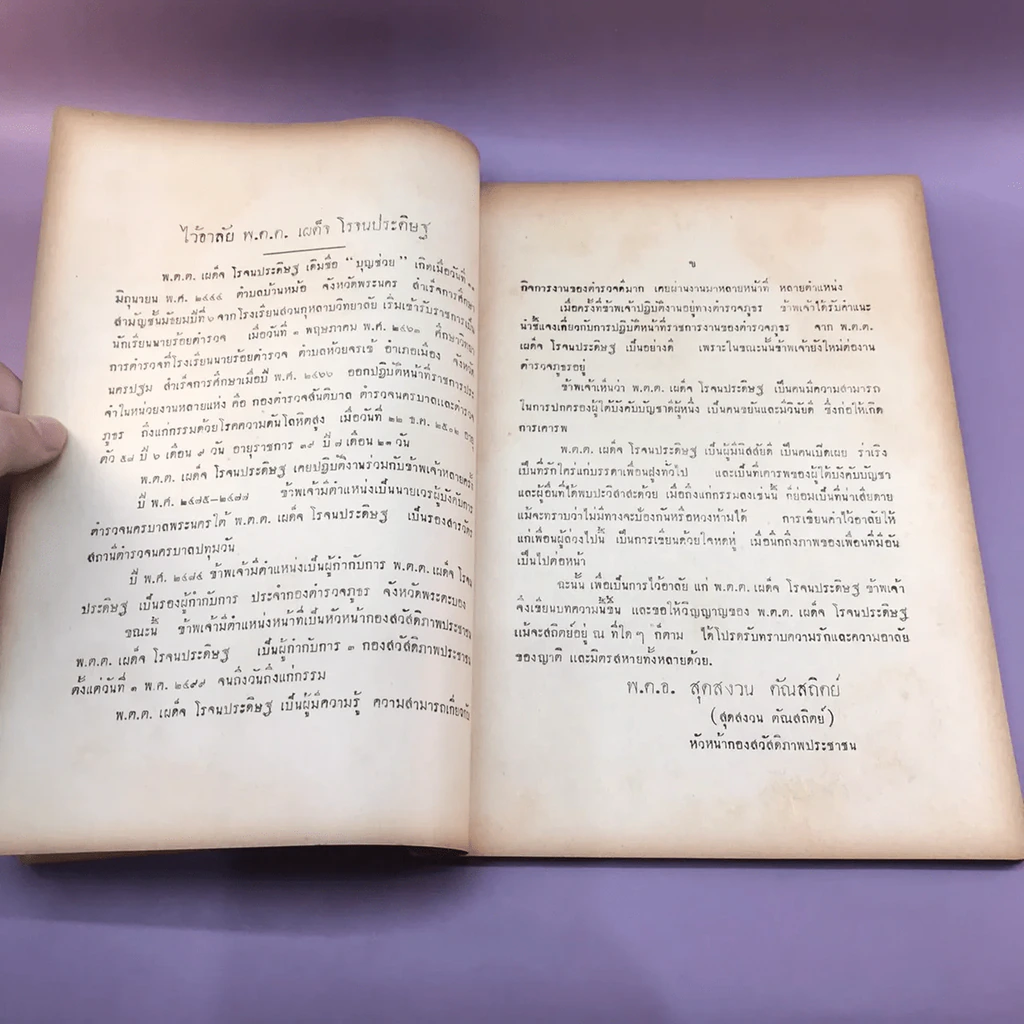 ไว้อาลัย พ.ต.ต. เผด็จ โรจนประดิษฐ
พ.ต.ต. เผด็จ โรจนประดิษฐ เดิมชื่อ "บุญช่วย" เกิดเมื่อวันที่
มิถุนายน พ.ศ. ๒๔๕๔ ตำบลบ้านหม้อ จังหวัดพระนคร สำเร็จการศึกษา
สามัญชั้นมัธยมปีที่ ๖ จากโรงเรียนสวนกุหลาบวิทยาลัย เริ่มเข้ารับราชการเป็น
นักเรียนนายร้อยตำรวจ เมื่อวันที่ ๑ พฤษภาคม พ.ศ. ๒๔๖๓ ศึกษาวิทยา
การตำรวจที่โรงเรียนนายร้อยตำรวจ ตำบลห้วยจรเข้ อำเภอเมือง จังหวัด
นครปฐม สำเร็จการศึกษาเมื่อปี พ.ศ. ๒๔๖๖ ออกปฏิบัติหน้าที่ราชการประ
จำในหน่วยงานหลายแห่ง คือ กองตำรวจสันติบาล ตำรวจนครบาลและตำรวจ
ภูธร ถึงแก่กรรมด้วยโรคความดันโลหิตสูง เมื่อวันที่ ๒๒ ธ.ค. ๒๕๐๒ อายุ
ตัว ๕๘ ปี ๖ เดือน ๙ วัน อายุราชการ ๓๙ ปี ๗ เดือน ๒๑ วัน
พ.ต.ต. เผด็จ โรจนประดิษฐ เคยปฏิบัติงานร่วมกับข้าพเจ้าหลายครั้ง
ปี พ.ศ. ๒๔๗๕-๒๔๗๗ ข้าพเจ้ามีตำแหน่งเป็นนายเวรผู้บังคับการ
ตำรวจนครบาลพระนครใต้ พ.ต.ต. เผด็จ โรจนประดิษฐ เป็นรองสารวัตร
สถานีตำรวจนครบาลปทุมวัน
ปี พ.ศ. ๒๔๘๕ ข้าพเจ้ามีตำแหน่งเป็นผู้กำกับการ พ.ต.ต. เผด็จ โรจน
ประดิษฐ เป็นรองผู้กำกับการ ประจำกองตำรวจภูธร จังหวัดพระตะบอง
ขณะนี้ ข้าพเจ้ามีตำแหน่งหน้าที่เป็นหัวหน้ากองสวัสดิภาพประชาชน
พ.ต.ต. เผด็จ โรจนประดิษฐ เป็นผู้กำกับการ ๓ กองสวัสดิภาพประชาชน
ตั้งแต่วันที่ ๑ พ.ค. ๒๔๙๙ จนถึงวันถึงแก่กรรม
พ.ต.ต. เผด็จ โรจนประดิษฐ เป็นผู้มีความรู้ ความสามารถเกี่ยวกับ
ข
กิจการงานของตำรวจดีมาก เคยผ่านงานมาหลายหน้าที่ หลายตำแหน่ง
เมื่อครั้งที่ข้าพเจ้าปฏิบัติงานอยู่ทางตำรวจภูธร ข้าพเจ้าได้รับคำแนะ
นำชี้แจงเกี่ยวกับการปฏิบัติหน้าที่ราชการงานของตำรวจภูธร จาก พ.ต.ต.
เผด็จ โรจนประดิษฐ เป็นอย่างดี เพราะในขณะนั้นข้าพเจ้ายังใหม่ต่องาน
ตำรวจภูธรอยู่
ข้าพเจ้าเห็นว่า พ.ต.ต. เผด็จ โรจนประดิษฐ เป็นคนมีความสามารถ
ในการปกครองผู้ใต้บังคับบัญชาดีผู้หนึ่ง เป็นคนขยันและมีวินัยดี ซึ่งก่อให้เกิด
การเคารพ
พ.ต.ต. เผด็จ โรจนประดิษฐ เป็นผู้มีนิสสัยดี เป็นคนเปิดเผย ร่าเริง
เป็นที่รักใคร่แก่บรรดาเพื่อนฝูงทั่วไป และเป็นที่เคารพของผู้ใต้บังคับบัญชา
และผู้อื่นที่ได้พบปะวิสาสะด้วย เมื่อถึงแก่กรรมลงเช่นนี้ ก็ย่อมเป็นที่น่าเสียดาย
แม้จะทราบว่าไม่มีทางจะป้องกันหรือหวงห้ามได้ การเขียนคำไว้อาลัยให้
แก่เพื่อนผู้ล่วงไปนี้ เป็นการเขียนด้วยใจหดหู่ เมื่อนึกถึงภาพของเพื่อนที่มีอัน
เป็นไปต่อหน้า
ฉะนั้น เพื่อเป็นการไว้อาลัย แก่ พ.ต.ต. เผด็จ โรจนประดิษฐ ข้าพเจ้า
จึงเขียนบทความนี้ขึ้น และขอให้วิญญาญของ พ.ต.ต. เผด็จ โรจนประดิษฐ
แม้จะสถิตย์อยู่ ณ ที่ใด ๆ ก็ตาม ได้โปรดรับทราบความรักและความอาลัย
ของญาติ และมิตรสหายทั้งหลายด้วย.
พ.ต.อ. สุดสงวน ตัณสถิตย์
(สุดสงวน ตัณสถิตย์)
หัวหน้ากองสวัสดิภาพประชาชน